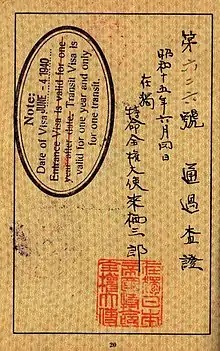 Note:
Date of Visa JUNE - 4 1940
Entrance Visa is valid for one
year after date; Transit Visa is
valid for one year and only
for one transit.
通過査證
昭和十五年六月四日
在獨
特命全権大使来栖三郎
20